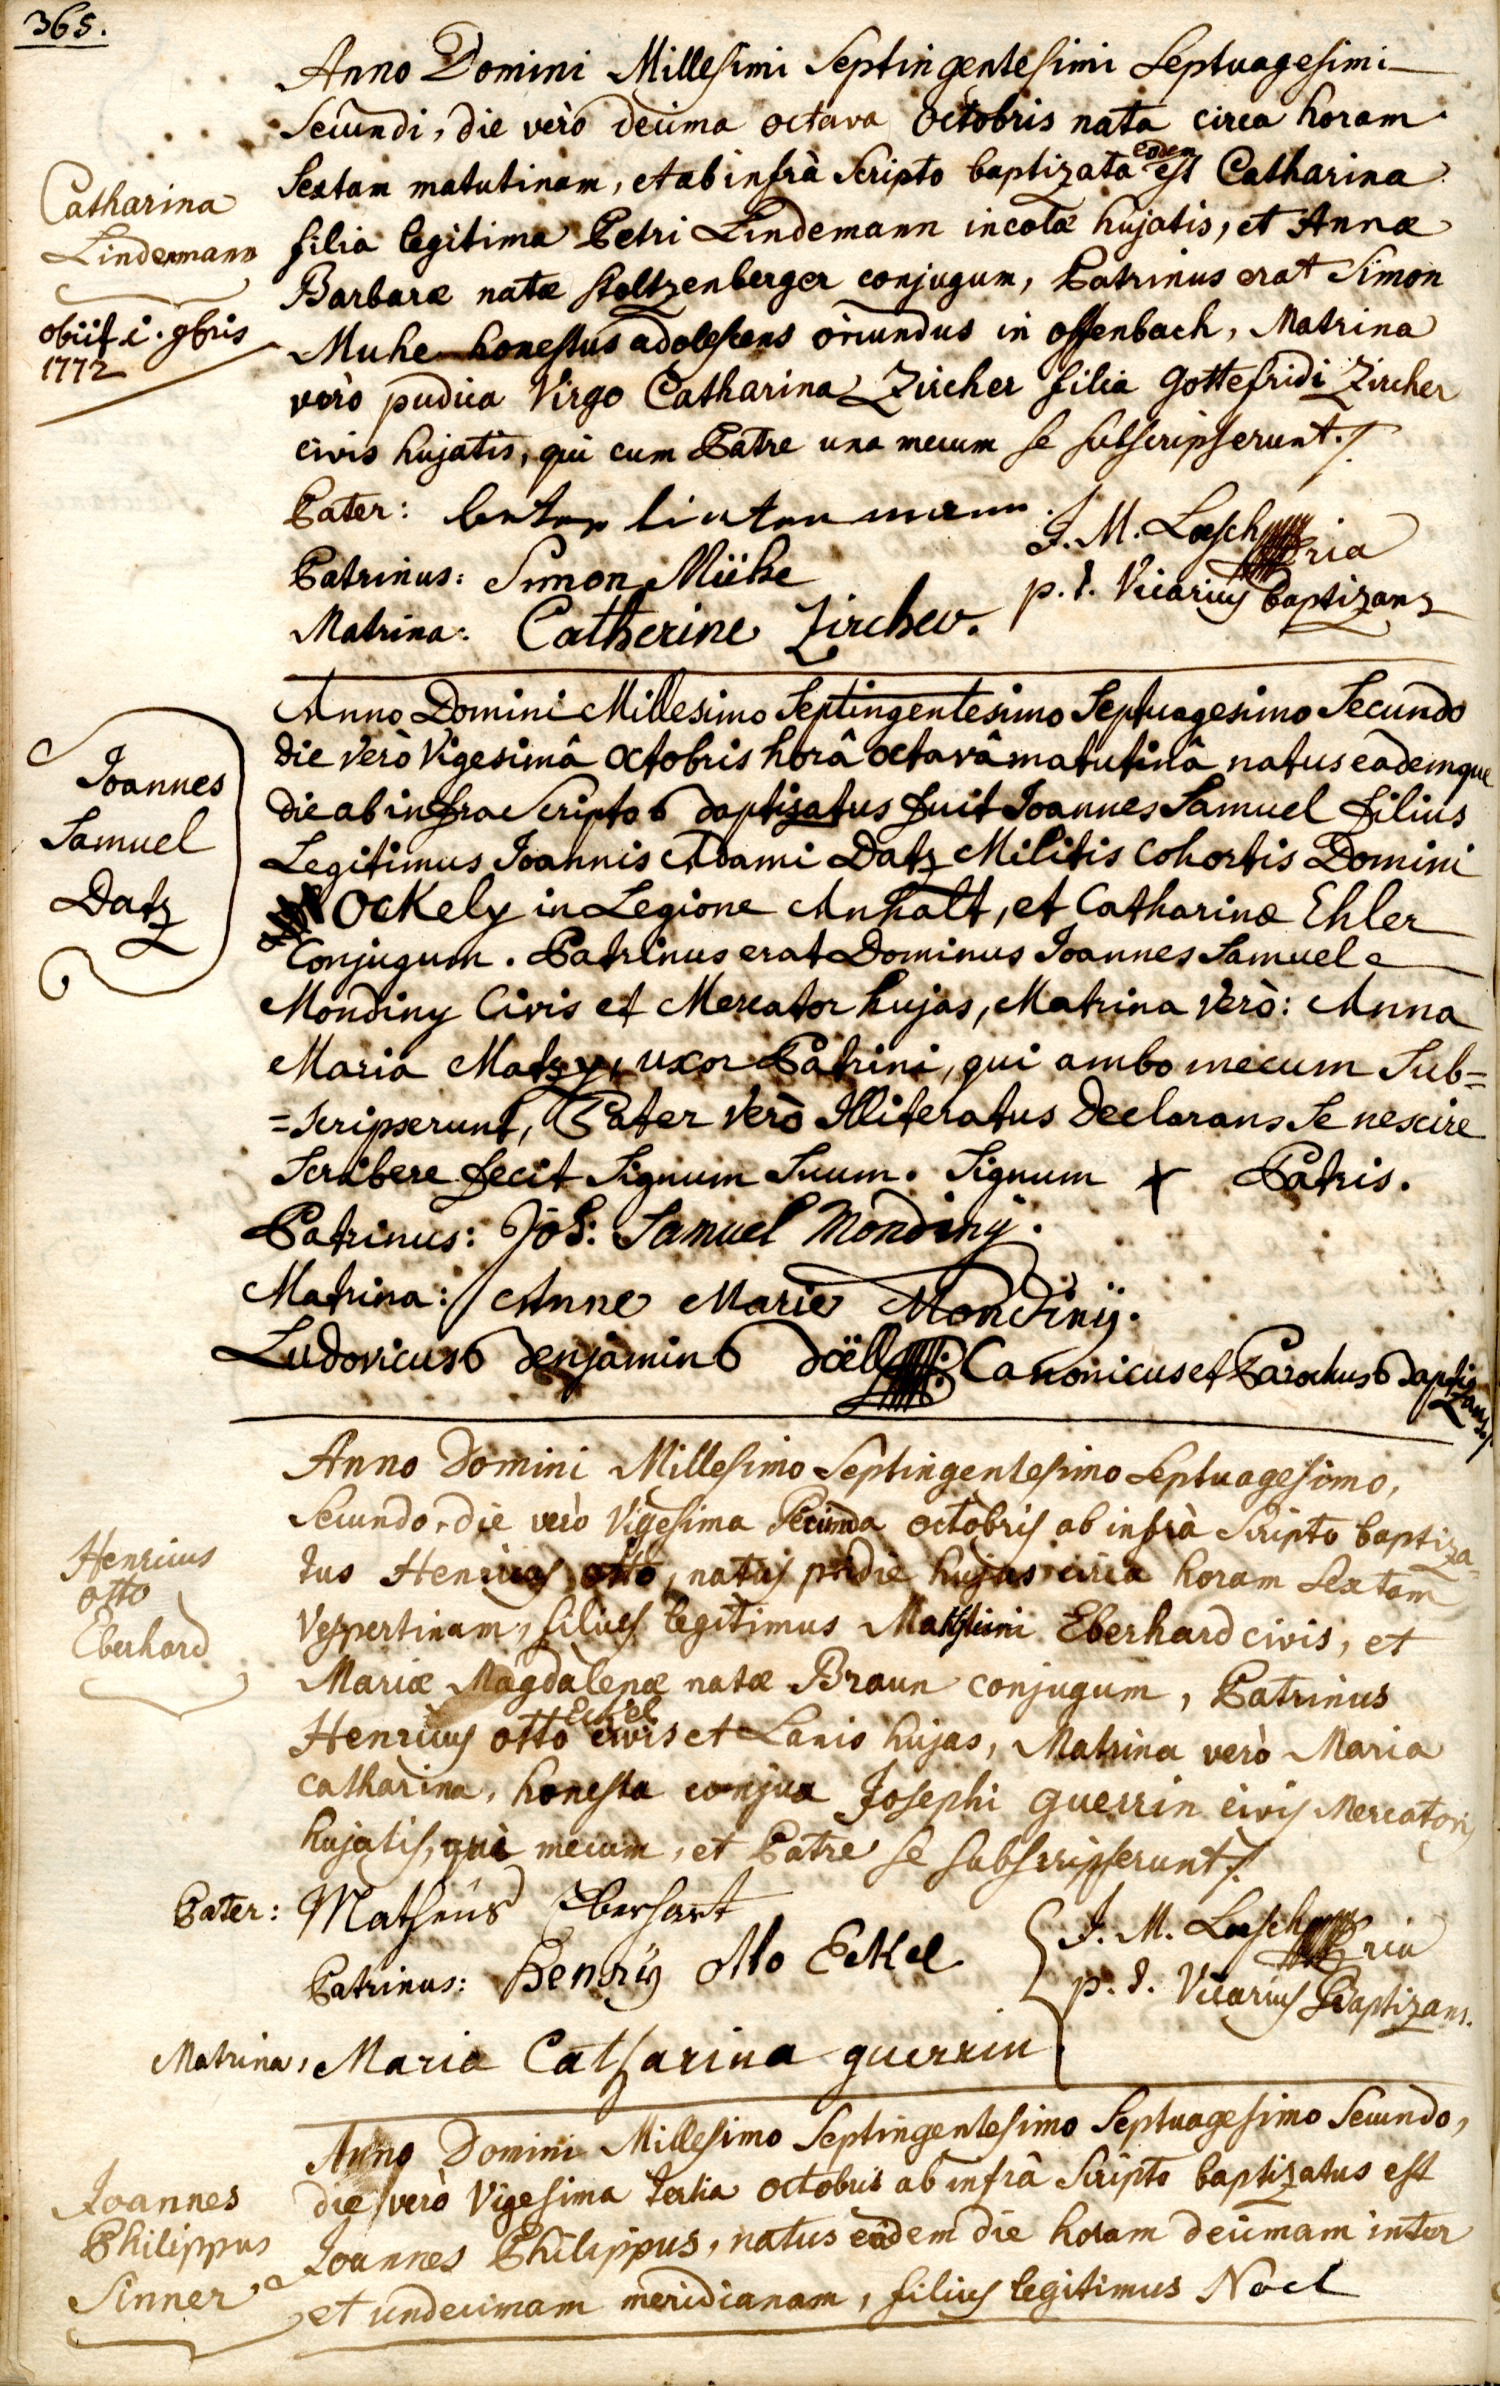 365.
Anno Domini Millesimi Septingentesimi Septuagesimi
Secundi, die verò decima octava octobris nata circa horam
Catharina
Lindemann
obiit i. 9bris
1772
Sextam matutinam, et ab infrà Scripto baptizata eodem est Catharina
filia legitima Petri Lindemann incolæ hujatis, et Annæ
Barbaræ natæ Stoltzenberger conjugum, Patrinus erat Simon
Muhe honestus adolescens oriundus in offenbach, Matrina
verò pudica Virgo Catharina Zircher filia Gottefridi Zircher
civis hujatis, qui cum Patre una mecum se subscripserunt./.
Pater:
Patrinus: Simon Mühe
Matrina: Catherine Zircher.
J. M. Loesch
p. t. Vicarius baptizans
Anno Domini Millesimo Septingentesimo Septuagesimo Secundo
Joannes
Samuel
Datz
die verò Vigesimâ octobris horâ octavâ matutinâ natus eademque
die ab infra Scripto Baptizatus fuit Joannes Samuel filius
Legitimus Joannis Adami Datz Militis Cohortis Domini
Ockely in Legione Anhalt, et Catharinæ Ehler
Conjugum. Patrinus erat Dominus Joannes Samuel
Mondiny Civis et Mercator hujas, Matrina verò: Anna
Maria Matzy, uxor Patrini, qui ambo mecum Sub=
=scripserunt, Pater verò Illiteratus declarans se nescire
Scribere fecit Signum Suum. Signum + Patris.
Patrinus: Joh: Samuel Mondiny.
Matrina: Anne Marie Mondinÿ.
Ludovicus Benjamin Boëll Canonicus et Parochus Baptizans
Anno Domini Millesimo Septingentesimo Septuagesimo,
Henricus
otto
Eberhard
Secundo, die verò Vigesima Secunda octobris ab infrà Scripto baptiza-
tus Henricus otto, natus pridie hujus circa horam Sextam
Vespertinam, filius legitimus Eberhard civis, et
Mariæ Magdalenæ natæ Braun conjugum, Patrinus
Henricus otto Eckel civis et Lanio hujas, Matrina verò Maria
Catharina, honesta conjux Josephi guerrin civis Mercatoris
hujatis, qui mecum, et Patre se subscripserunt./.
Pater: Matheus Eberhart
Patrinus: Henrÿ otto Eckel
Matrina, Maria Catharina guerrin
J. M. Loesch
p. t. Vicarius Baptizans.
Anno Domini Millesimo Septingentesimo Septuagesimo Secundo,
Joannes
Philippus
Sinner
die verò Vigesima tertia octobris ab infrà Scripto baptizatus est
Joannes Philippus, natus eâdem die horam decimam inter
et undecimam meridianam, filius legitimus Noel